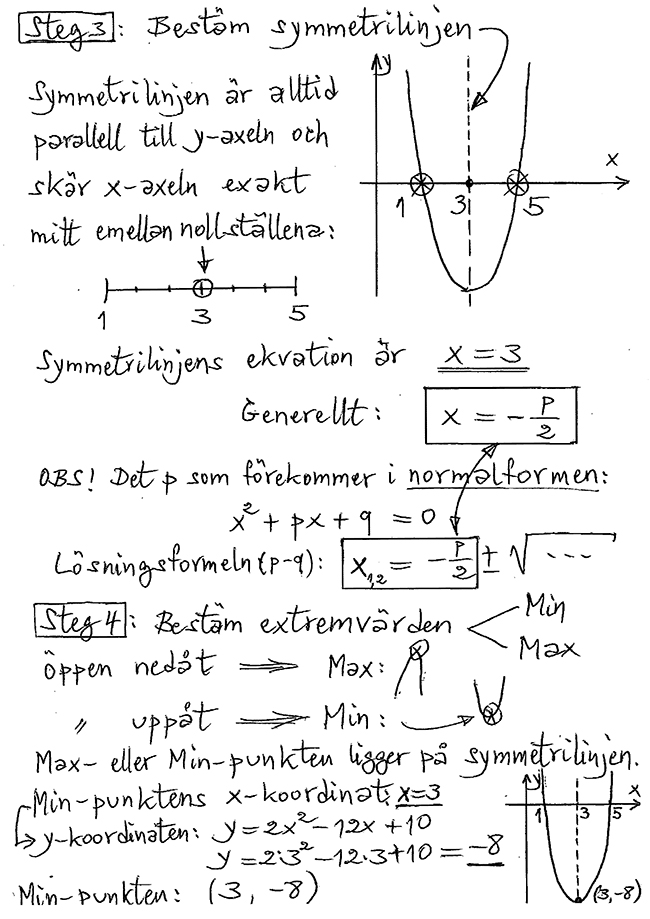 Steg 3: Bestäm symmetrilinjen
Symmetrilinjen är alltid
parallell till y-axeln och
skär x-axeln exakt
mitt emellan nollställena:
y
x
1 3 5
1 3 5
Symmetrilinjens ekvation är x = 3
Generellt: x = - p/2
OBS! Det p som förekommer i normalformen:
x² + px + q = 0
Lösningsformeln (p-q): x₁,₂ = - p/2 ± √ ...
Steg 4: Bestäm extremvärden Min
Max
öppen nedåt ⟹ Max:
〃 uppåt ⟹ Min:
Max- eller Min-punkten ligger på symmetrilinjen.
Min-punktens x-koordinat: x=3
y-koordinaten: y = 2x² - 12x + 10
y = 2·3² - 12·3 + 10 = -8
Min-punkten: (3, -8)
y
x
1 3 5
(3,-8)